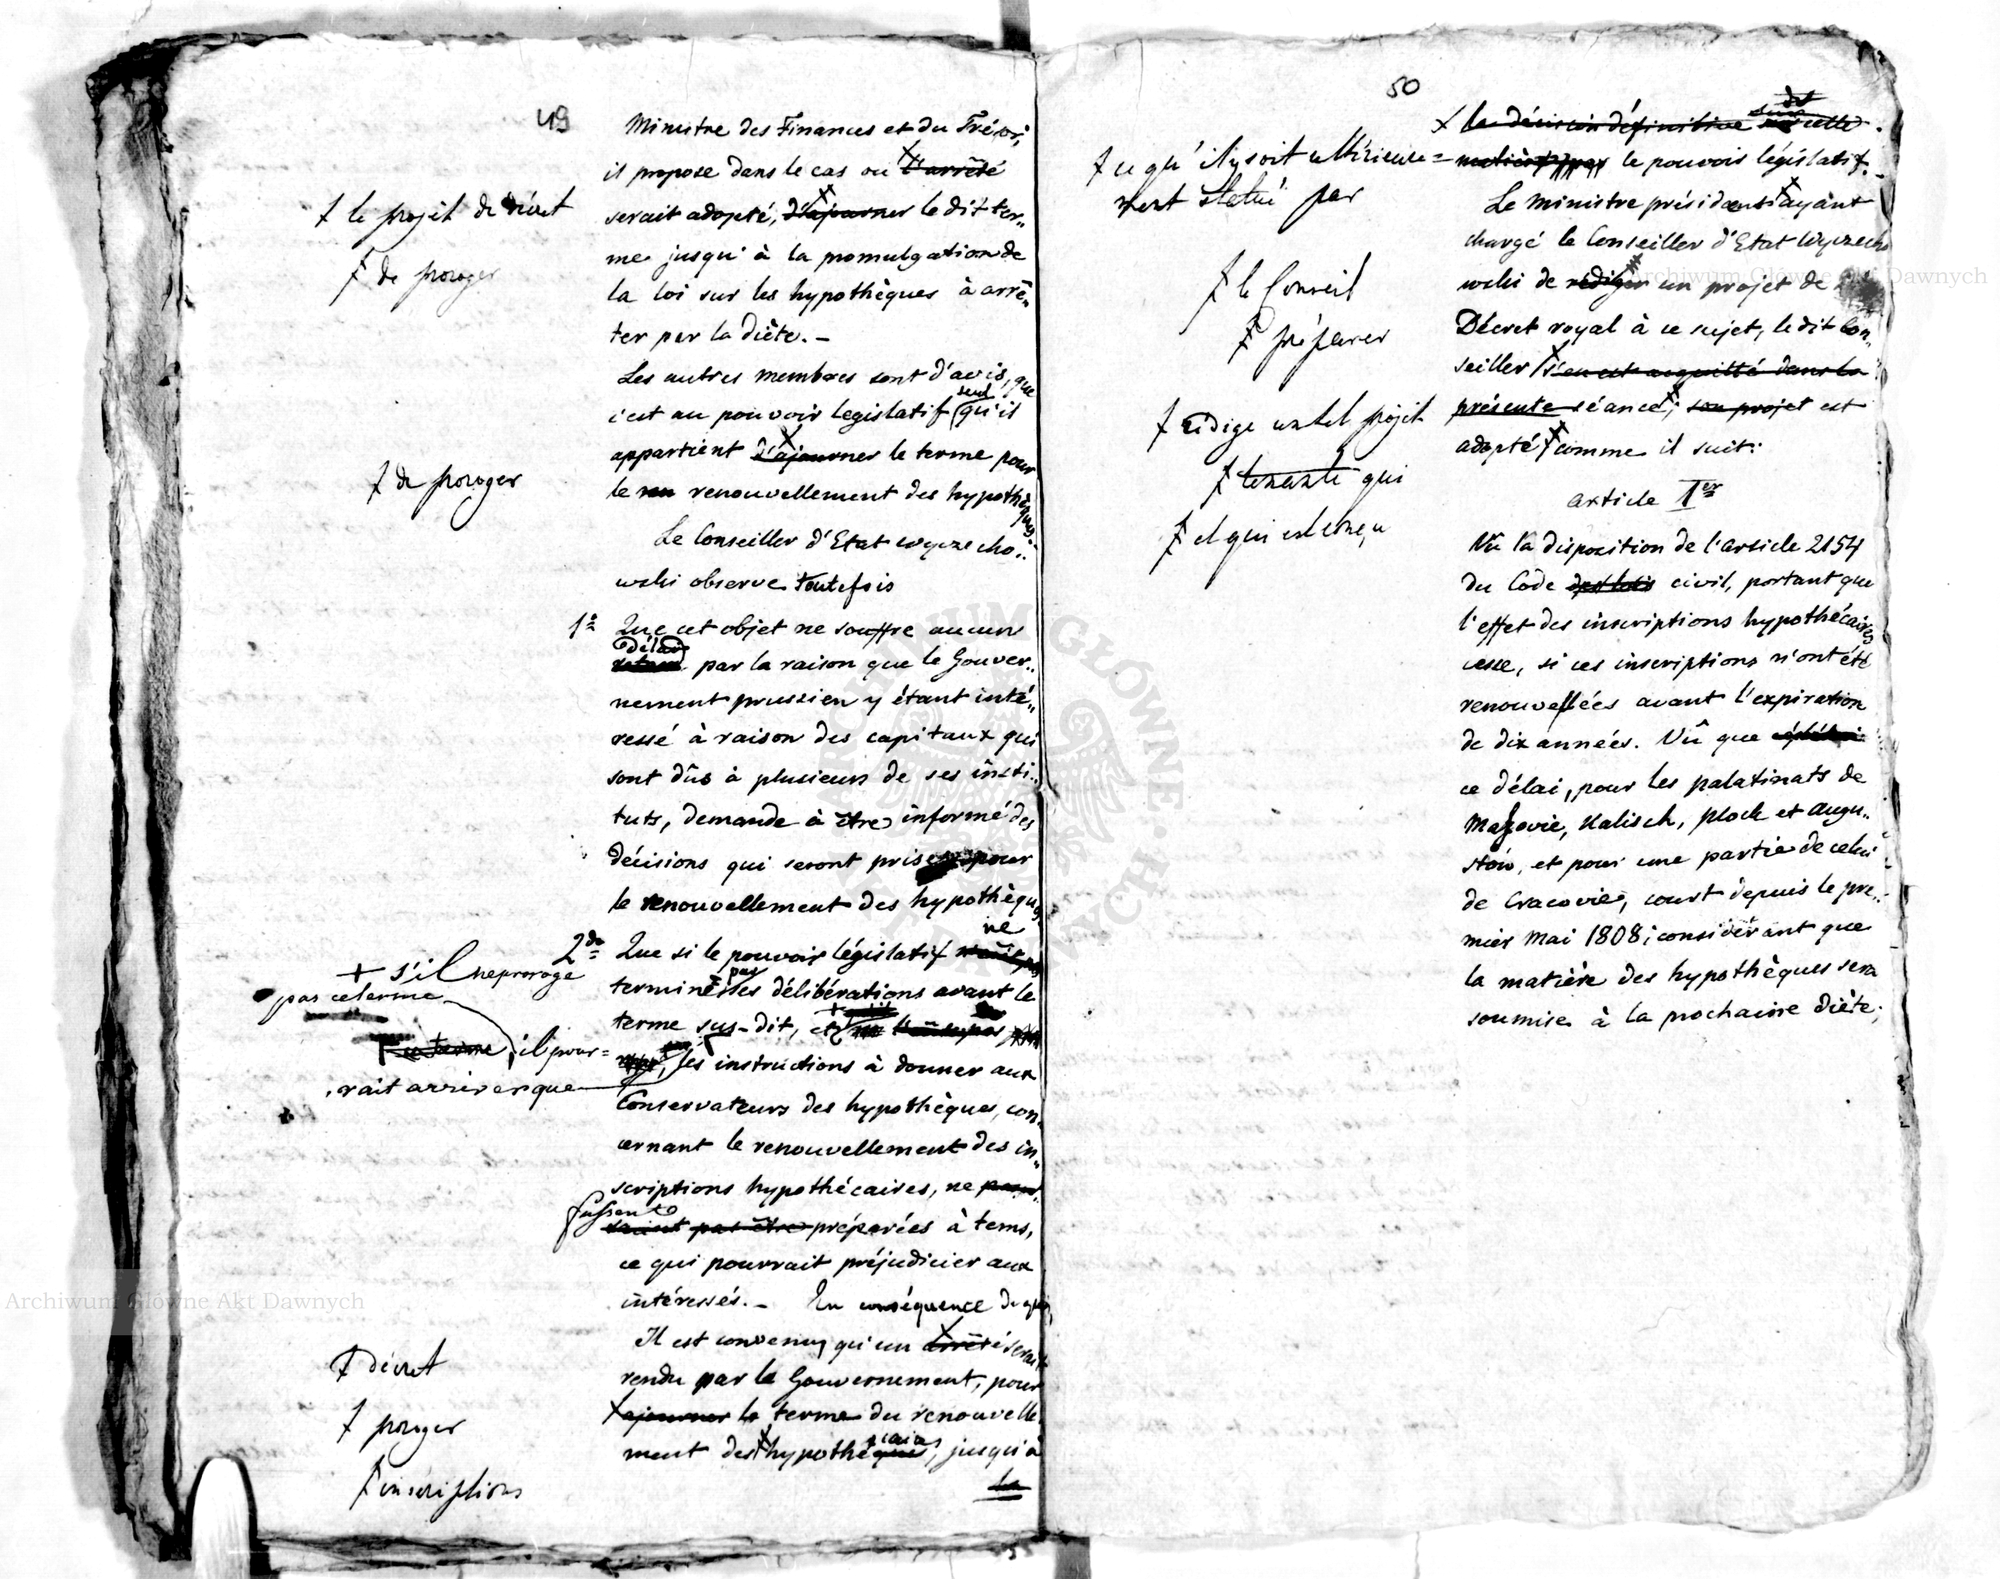 49
Ministre des Finances et du Trésor;
il propose dans le cas ou l'arrêté
ƒ le projet de décret
serait adopté, d'ajourner le dit ter„
me jusqu'à la promulgation de
ƒ de proroger
la loi sur les hypothèques à arrê„
ter par la Diète. –
Les autres membres sont d'avis, que
c'est au pouvoir legislatif seul qu'il
appartient d'ajourner le terme pour
ƒ de proroger
le renouvellement des hypothèques.
Le Conseiller d'Etat Wyczecho„
wski observe toutefois
1º Que cet objet ne souffre aucun
délai
par la raison que le Gouver„
nement prussien y étant inté„
ressé à raison des capitaux qui
sont dûs à plusieurs de ses insti„
tuts, demande à être informé des
décisions qui seront prises pour
le renouvellement des hypothèques
2do Que si le pouvoir législatif ne
termine pas ses délibérations avant le
+ s'il ne proroge
pas ce terme
terme sus-dit, et
ce terme, il pour=
rait arriver que
les instructions à donner aux
Conservateurs des hypothèques, con„
cernant le renouvellement des in„
scriptions hypothécaires, ne pour
fussent
raient pas être préparées à tems,
ce qui pourrait préjudicier aux
intéressés. – En conséquence de quoi
Il est convenu qu'un arrêté serait
ƒ décret
rendu par le Gouvernement, pour
ajourner le terme du renouvelle
ƒ proroger
ment des hypothèques, caires, jusqu'à
ƒ inscriptions
la
50
la décision définitive sur cette
ƒ ce qu'il y soit ultérieure=
ment statué par
matière par le pouvoir législatif.
Le Ministre président ayant
chargé le Conseiller d'Etat Wyczecho
ƒ le Conseil
wski de rédiger un projet de
ƒ préparer
Décret royal à ce sujet, le dit Con„
seiller s'en est acquitté dans la
ƒ rédige un tel projet
présente séance; son projet est
ƒ séance qui
adopté comme il suit:
ƒ et qui est conçu
article Ier
Vû la disposition de l'article 2154
du Code des lois civil, portant que
l'effet des inscriptions hypothécaires
cesse, si ces inscriptions n'ont été
renouvellées avant l'expiration
de dix années. Vû que
ce délai, pour les palatinats de
Mazovie, Kalisch, Plock et Augu„
stow, et pour une partie de celui
de Cracovie, court depuis le pre„
mier Mai 1808; considérant que
la matière des hypothèques sera
soumise à la prochaine Diète;
Archiwum Główne Akt Dawnych
Archiwum Główne Akt Dawnych
ARCHIWUM GŁÓWNE AKT DAWNYCH